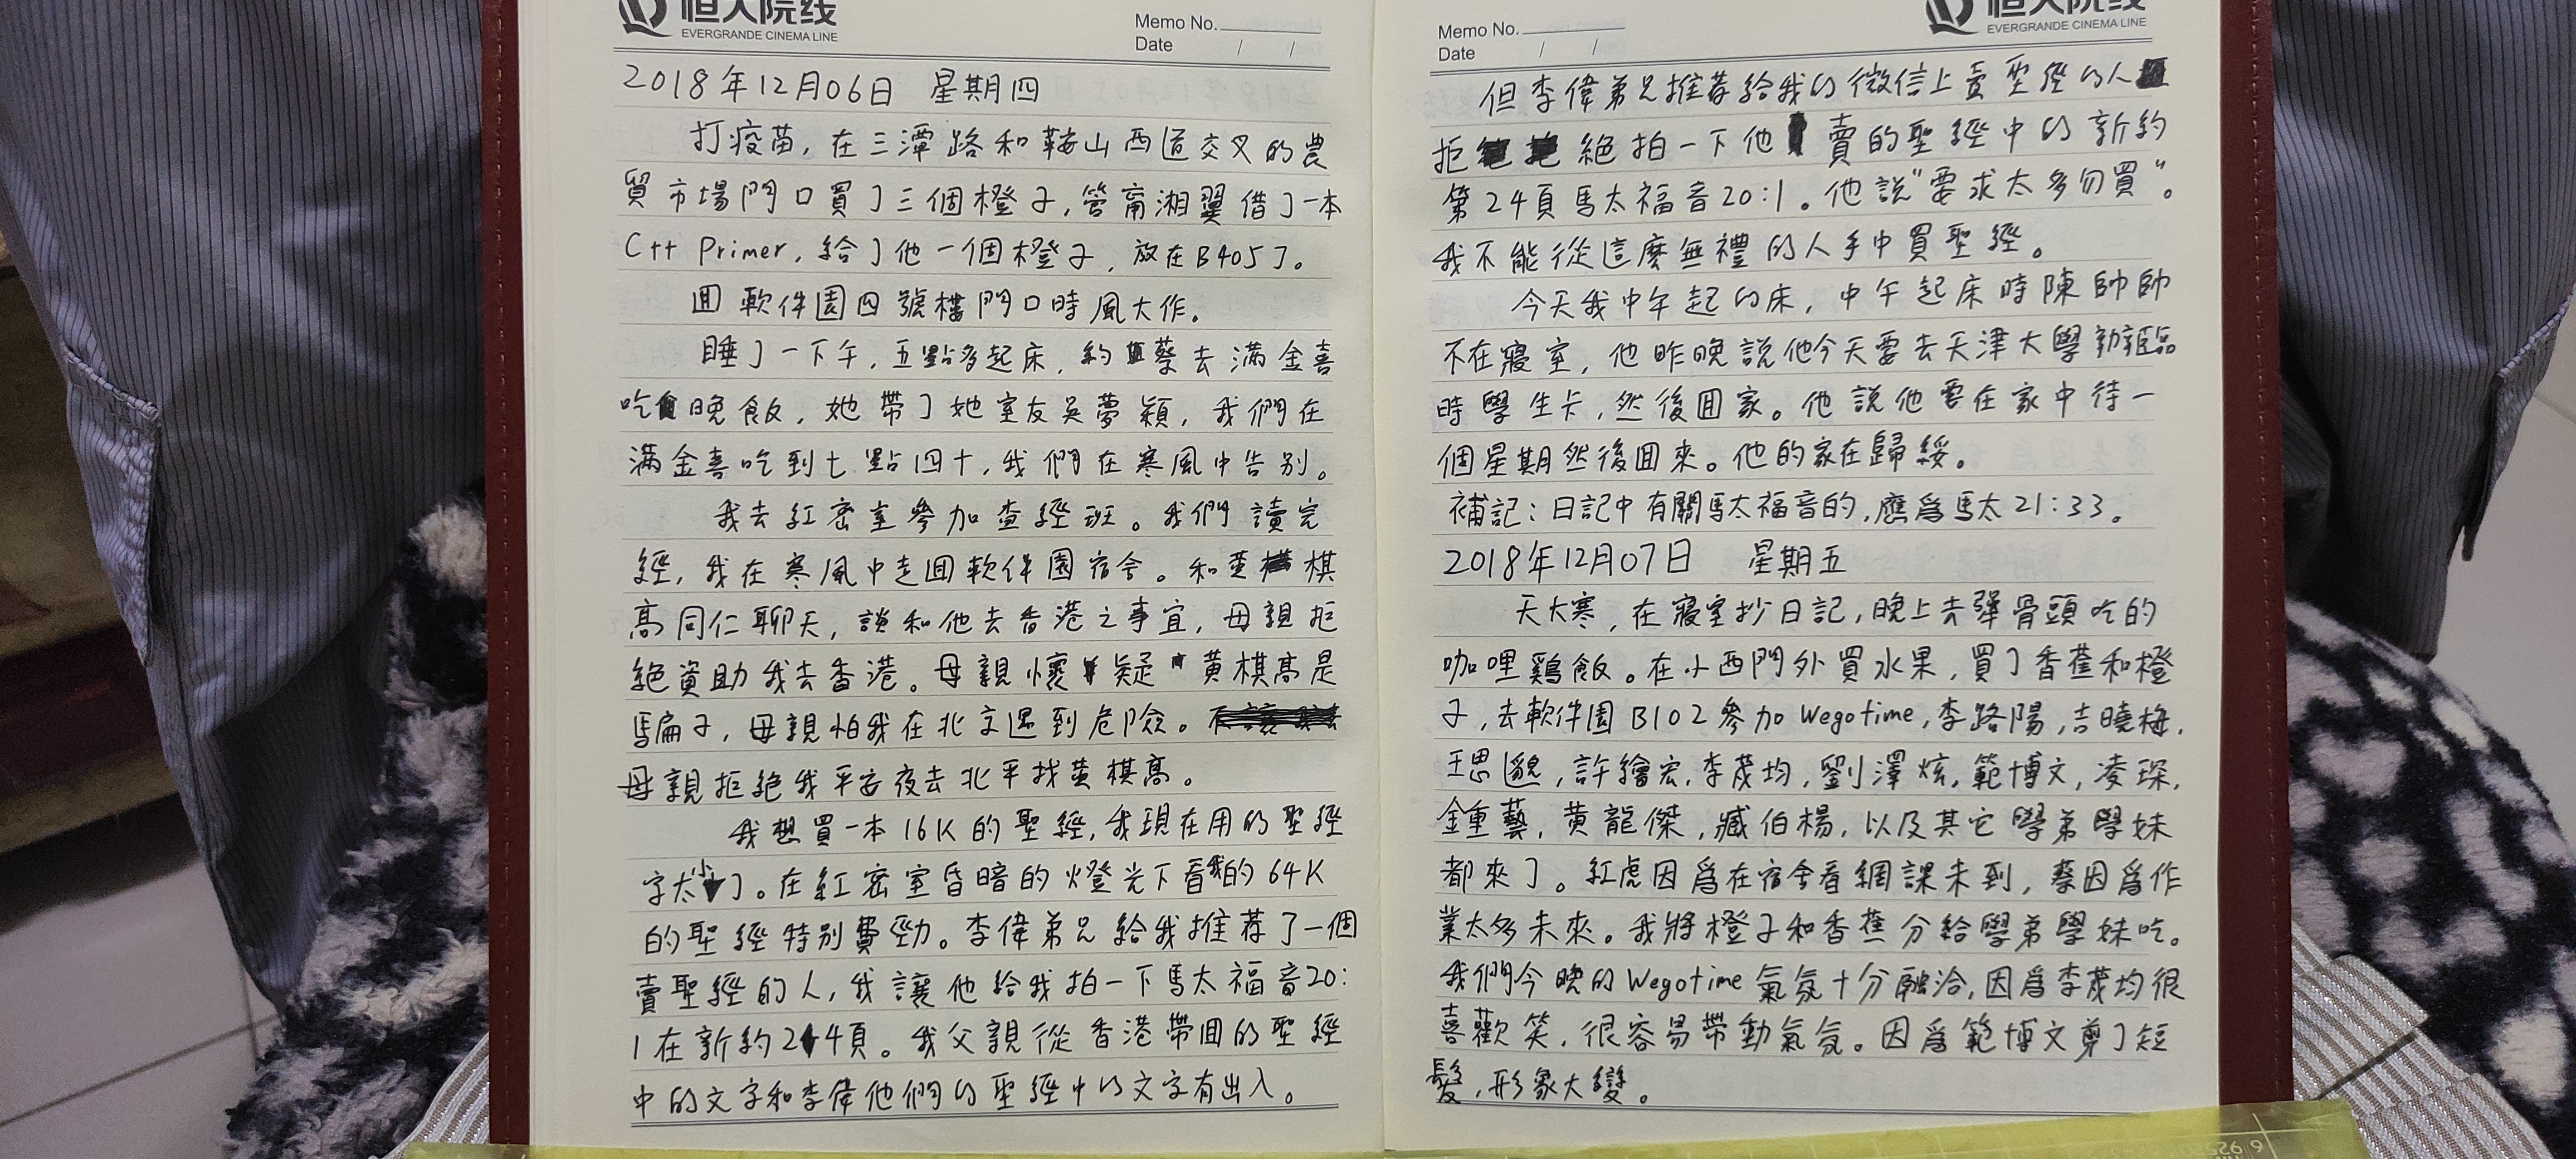 恒大院线
EVERGRANDE CINEMA LINE
Memo No.
Date / /
2018年12月06日 星期四
打疫苗,在三潭路和鞍山西道交叉的農
貿市場門口買了三個橙子,管甯湘翼借了一本
C++ Primer,給了他一個橙子,放在B405了。
回軟件園四號樓門口時風大作。
睡了一下午,五點多起床,約蔡去滿金喜
吃晚飯,她帶了她室友吴夢穎,我們在
滿金喜吃到七點四十,我們在寒風中告别。
我去紅密室參加查經班。我們讀完
經,我在寒風中走回軟件園宿舍。和黄棋
高同仁聊天,談和他去香港之事宜,母親拒
絶資助我去香港。母親懷疑黄棋高是
騙子,母親怕我在北京遇到危險。
母親拒絶我平安夜去北平找黄棋高。
我想買一本16K的聖經,我現在用的聖經
字太小了。在紅密室昏暗的燈光下看我的64K
的聖經特别費勁。李偉弟兄給我推荐了一個
賣聖經的人,我讓他給我拍一下馬太福音20:
1在新約24頁。我父親從香港帶回的聖經
中的文字和李偉他們的聖經中的文字有出入。
恒大院线
EVERGRANDE CINEMA LINE
Memo No.
Date / /
但李偉弟兄推荐給我的微信上賣聖經的人
拒絶拍一下他賣的聖經中的新約
第24頁馬太福音20:1。他說"要求太多勿買"。
我不能從這麼無禮的人手中買聖經。
今天我中午起的床,中午起床時陳帥帥
不在寢室,他昨晚說他今天要去天津大學辦臨
時學生卡,然後回家。他說他要在家中待一
個星期然後回來。他的家在歸綏。
補記:日記中有關馬太福音的,應爲馬太21:33。
2018年12月07日 星期五
天大寒,在寢室抄日記,晚上去犟骨頭吃的
咖哩鷄飯。在小西門外買水果,買了香蕉和橙
子,去軟件園B102參加Wegotime,李路陽,吉曉梅,
王思邈,許繪宏,李茂均,劉澤炫,範博文,凌琛,
鍾藝,黄龍傑,臧伯楊,以及其它學弟學妹
都來了。紅虎因爲在宿舍看網課未到,蔡因爲作
業太多未來。我將橙子和香蕉分給學弟學妹吃。
我們今晚的Wegotime氣氛十分融洽,因爲李茂均很
喜歡笑,很容易帶動氣氛。因爲範博文剪了短
髮,形象大變。